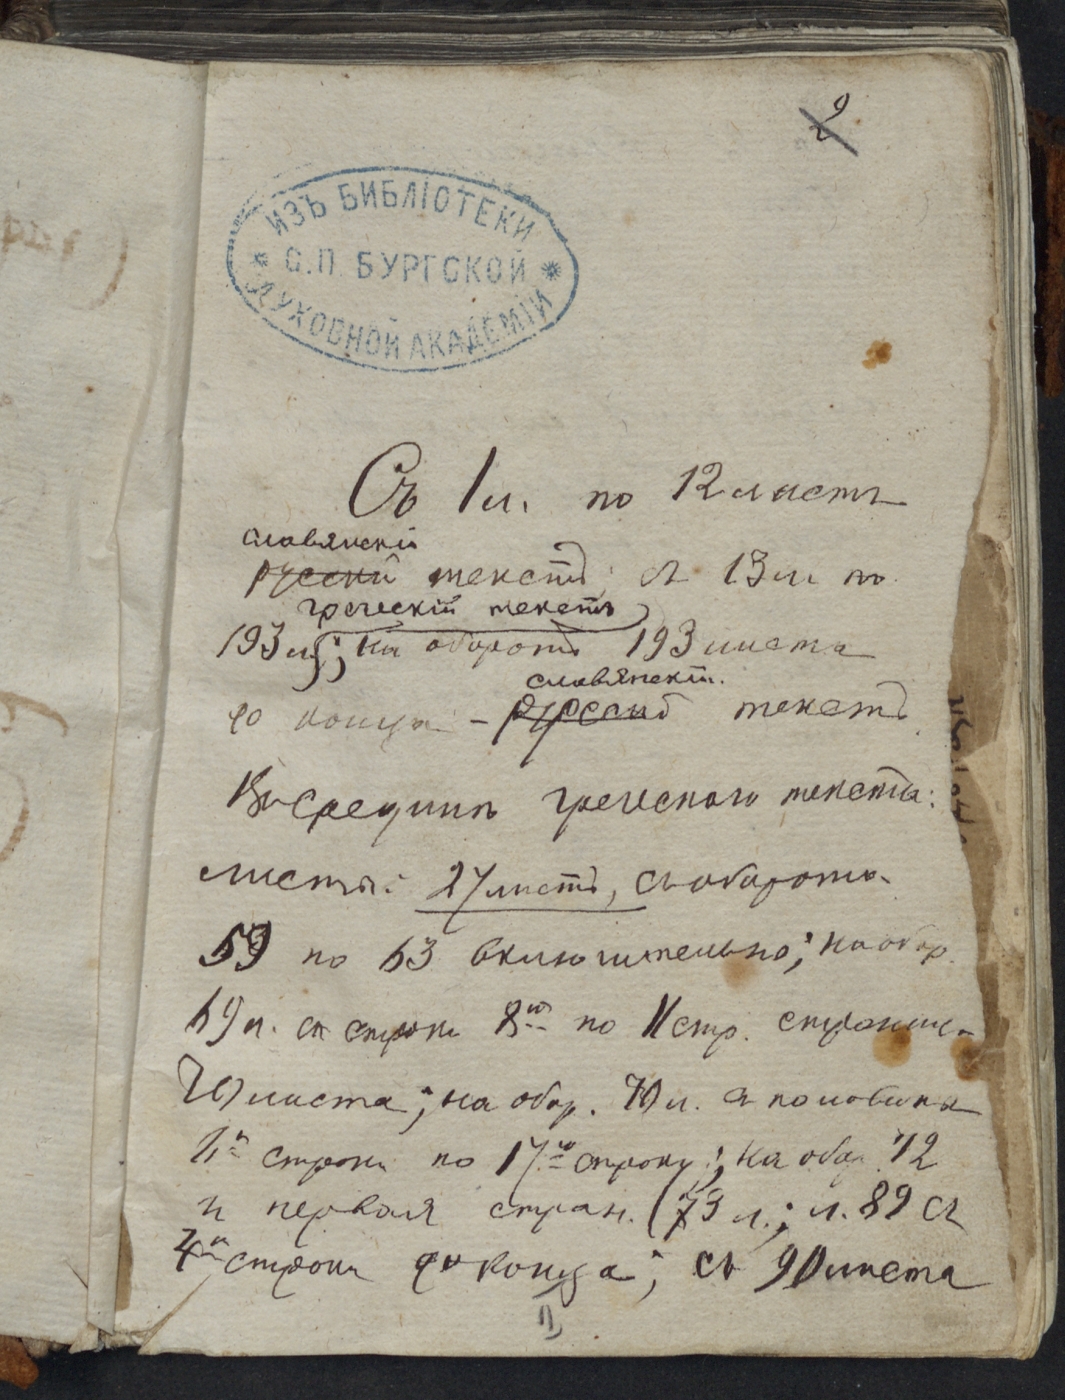 2
ИЗЪ БИБЛІОТЕКИ
С.П. БУРГСКОЙ
ДУХОВНОЙ АКАДЕМІИ
Съ 1 л. по 12 листъ
славянскій
русскій текстъ; съ 13 л по
греческій текстъ
193 л; на оборотѣ 193 листа
до конца – славянскій.
русскій текстъ
Въ срединѣ греческаго текста:
листы: 27 листъ, съ оборота
59 по 63 включительно; на обор.
69 л. съ строки 8ой по 11 стр. страницы
70 листа; на обор. 70 л. съ половины
строки по 17ую строку; на обор. 72
и первая стран. (73 л.; л. 89 съ
4й строки до конца; съ 90 листа